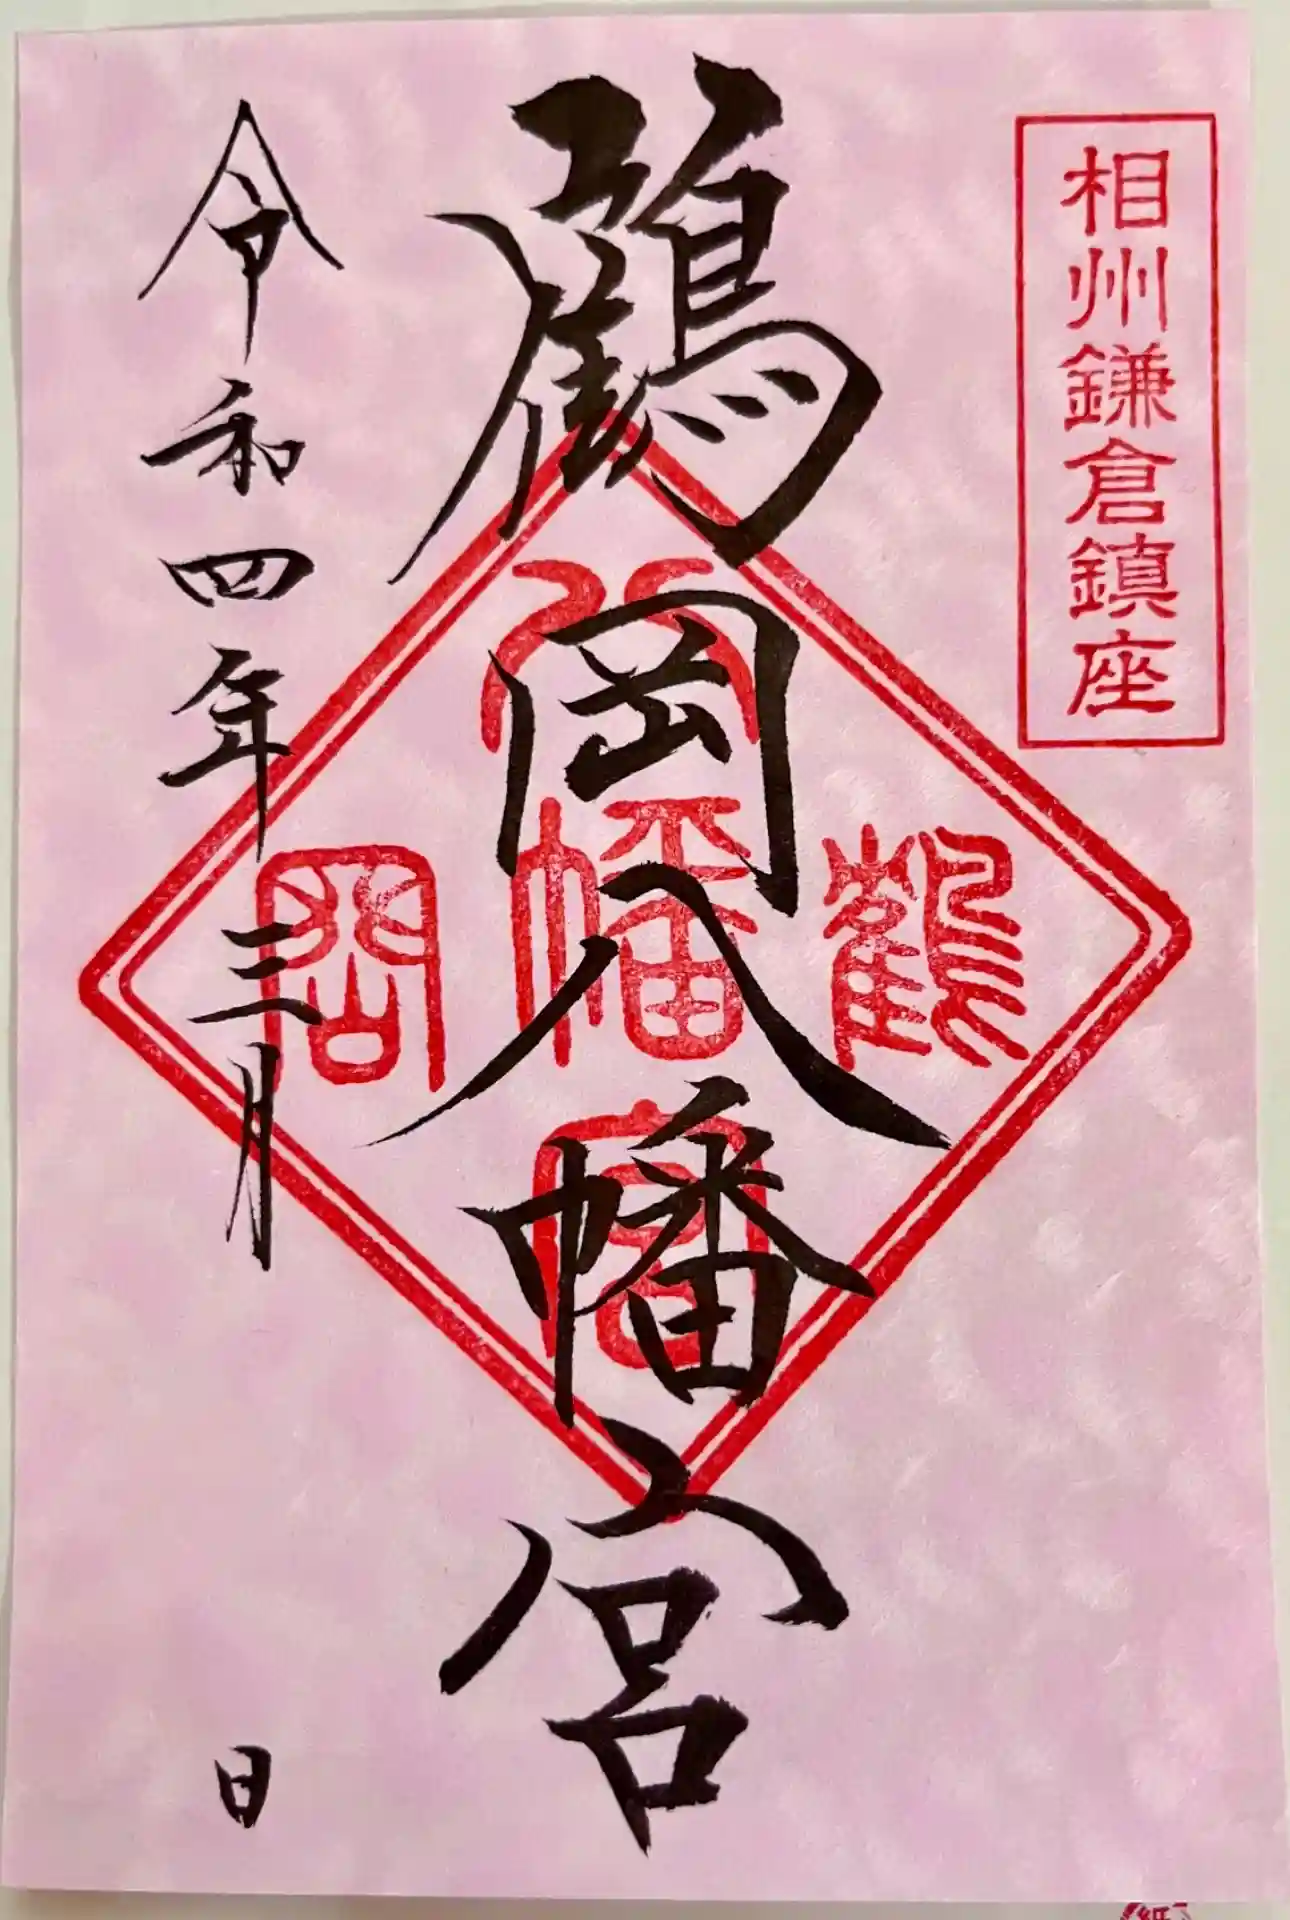 相州鎌倉鎮座
鶴岡八幡宮
鶴岡
八幡宮
令和四年三月 日